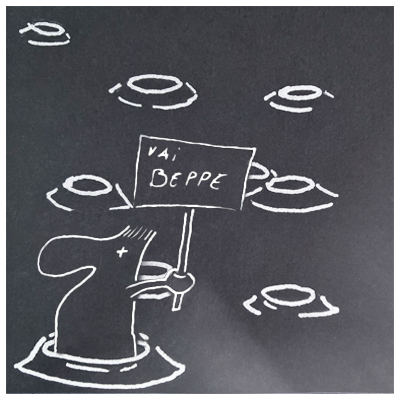 VAi
BEPPE